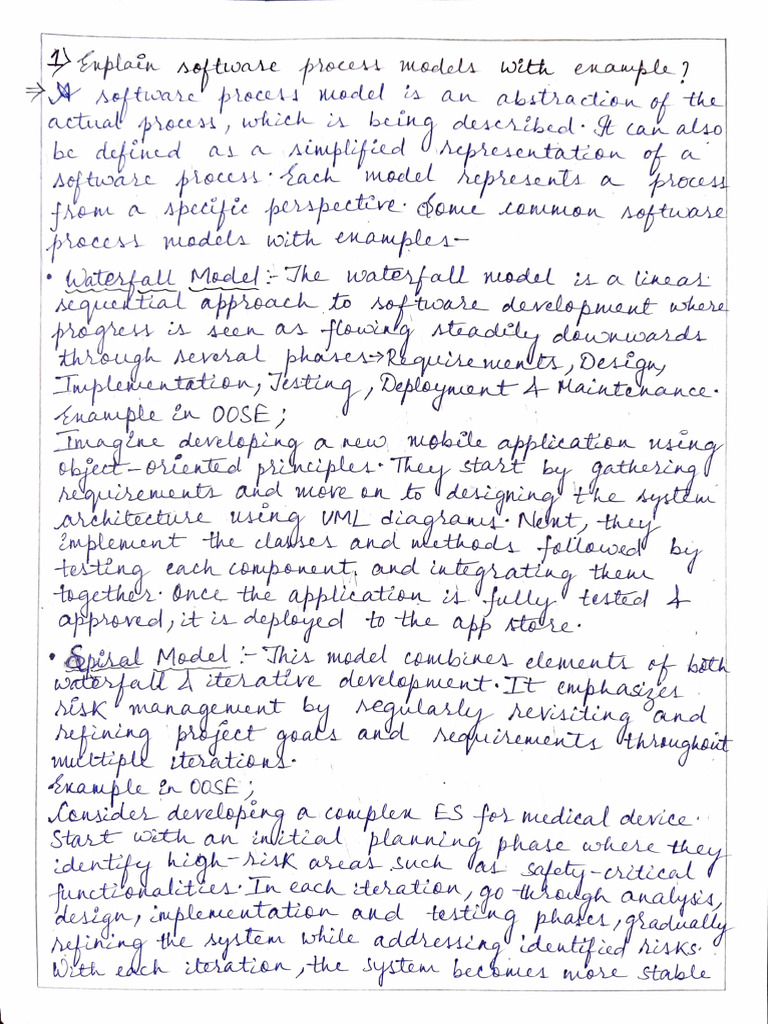 1) Explain software process models with example?
⇒ A software process model is an abstraction of the
actual process, which is being described. It can also
be defined as a simplified representation of a
software process. Each model represents a process
from a specific perspective. Some common software
process models with examples-
• Waterfall Model :- The waterfall model is a linear
sequential approach to software development where
progress is seen as flowing steadily downwards
through several phases→Requirements, Design,
Implementation, Testing, Deployment & Maintenance.
Example in OOSE;
Imagine developing a new mobile application using
object-oriented principles. They start by gathering
requirements and move on to designing the system
architecture using UML diagrams. Next, they
implement the classes and methods followed by
testing each component, and integrating them
together. Once the application is fully tested &
approved, it is deployed to the app store.
• Spiral Model :- This model combines elements of both
waterfall & iterative development. It emphasizes
risk management by regularly revisiting and
refining project goals and requirements throughout
multiple iterations.
Example in OOSE;
Consider developing a complex ES for medical device.
Start with an initial planning phase where they
identify high-risk areas such as safety-critical
functionalities. In each iteration, go through analysis,
design, implementation and testing phases, gradually
refining the system while addressing identified risks.
With each iteration, the system becomes more stable